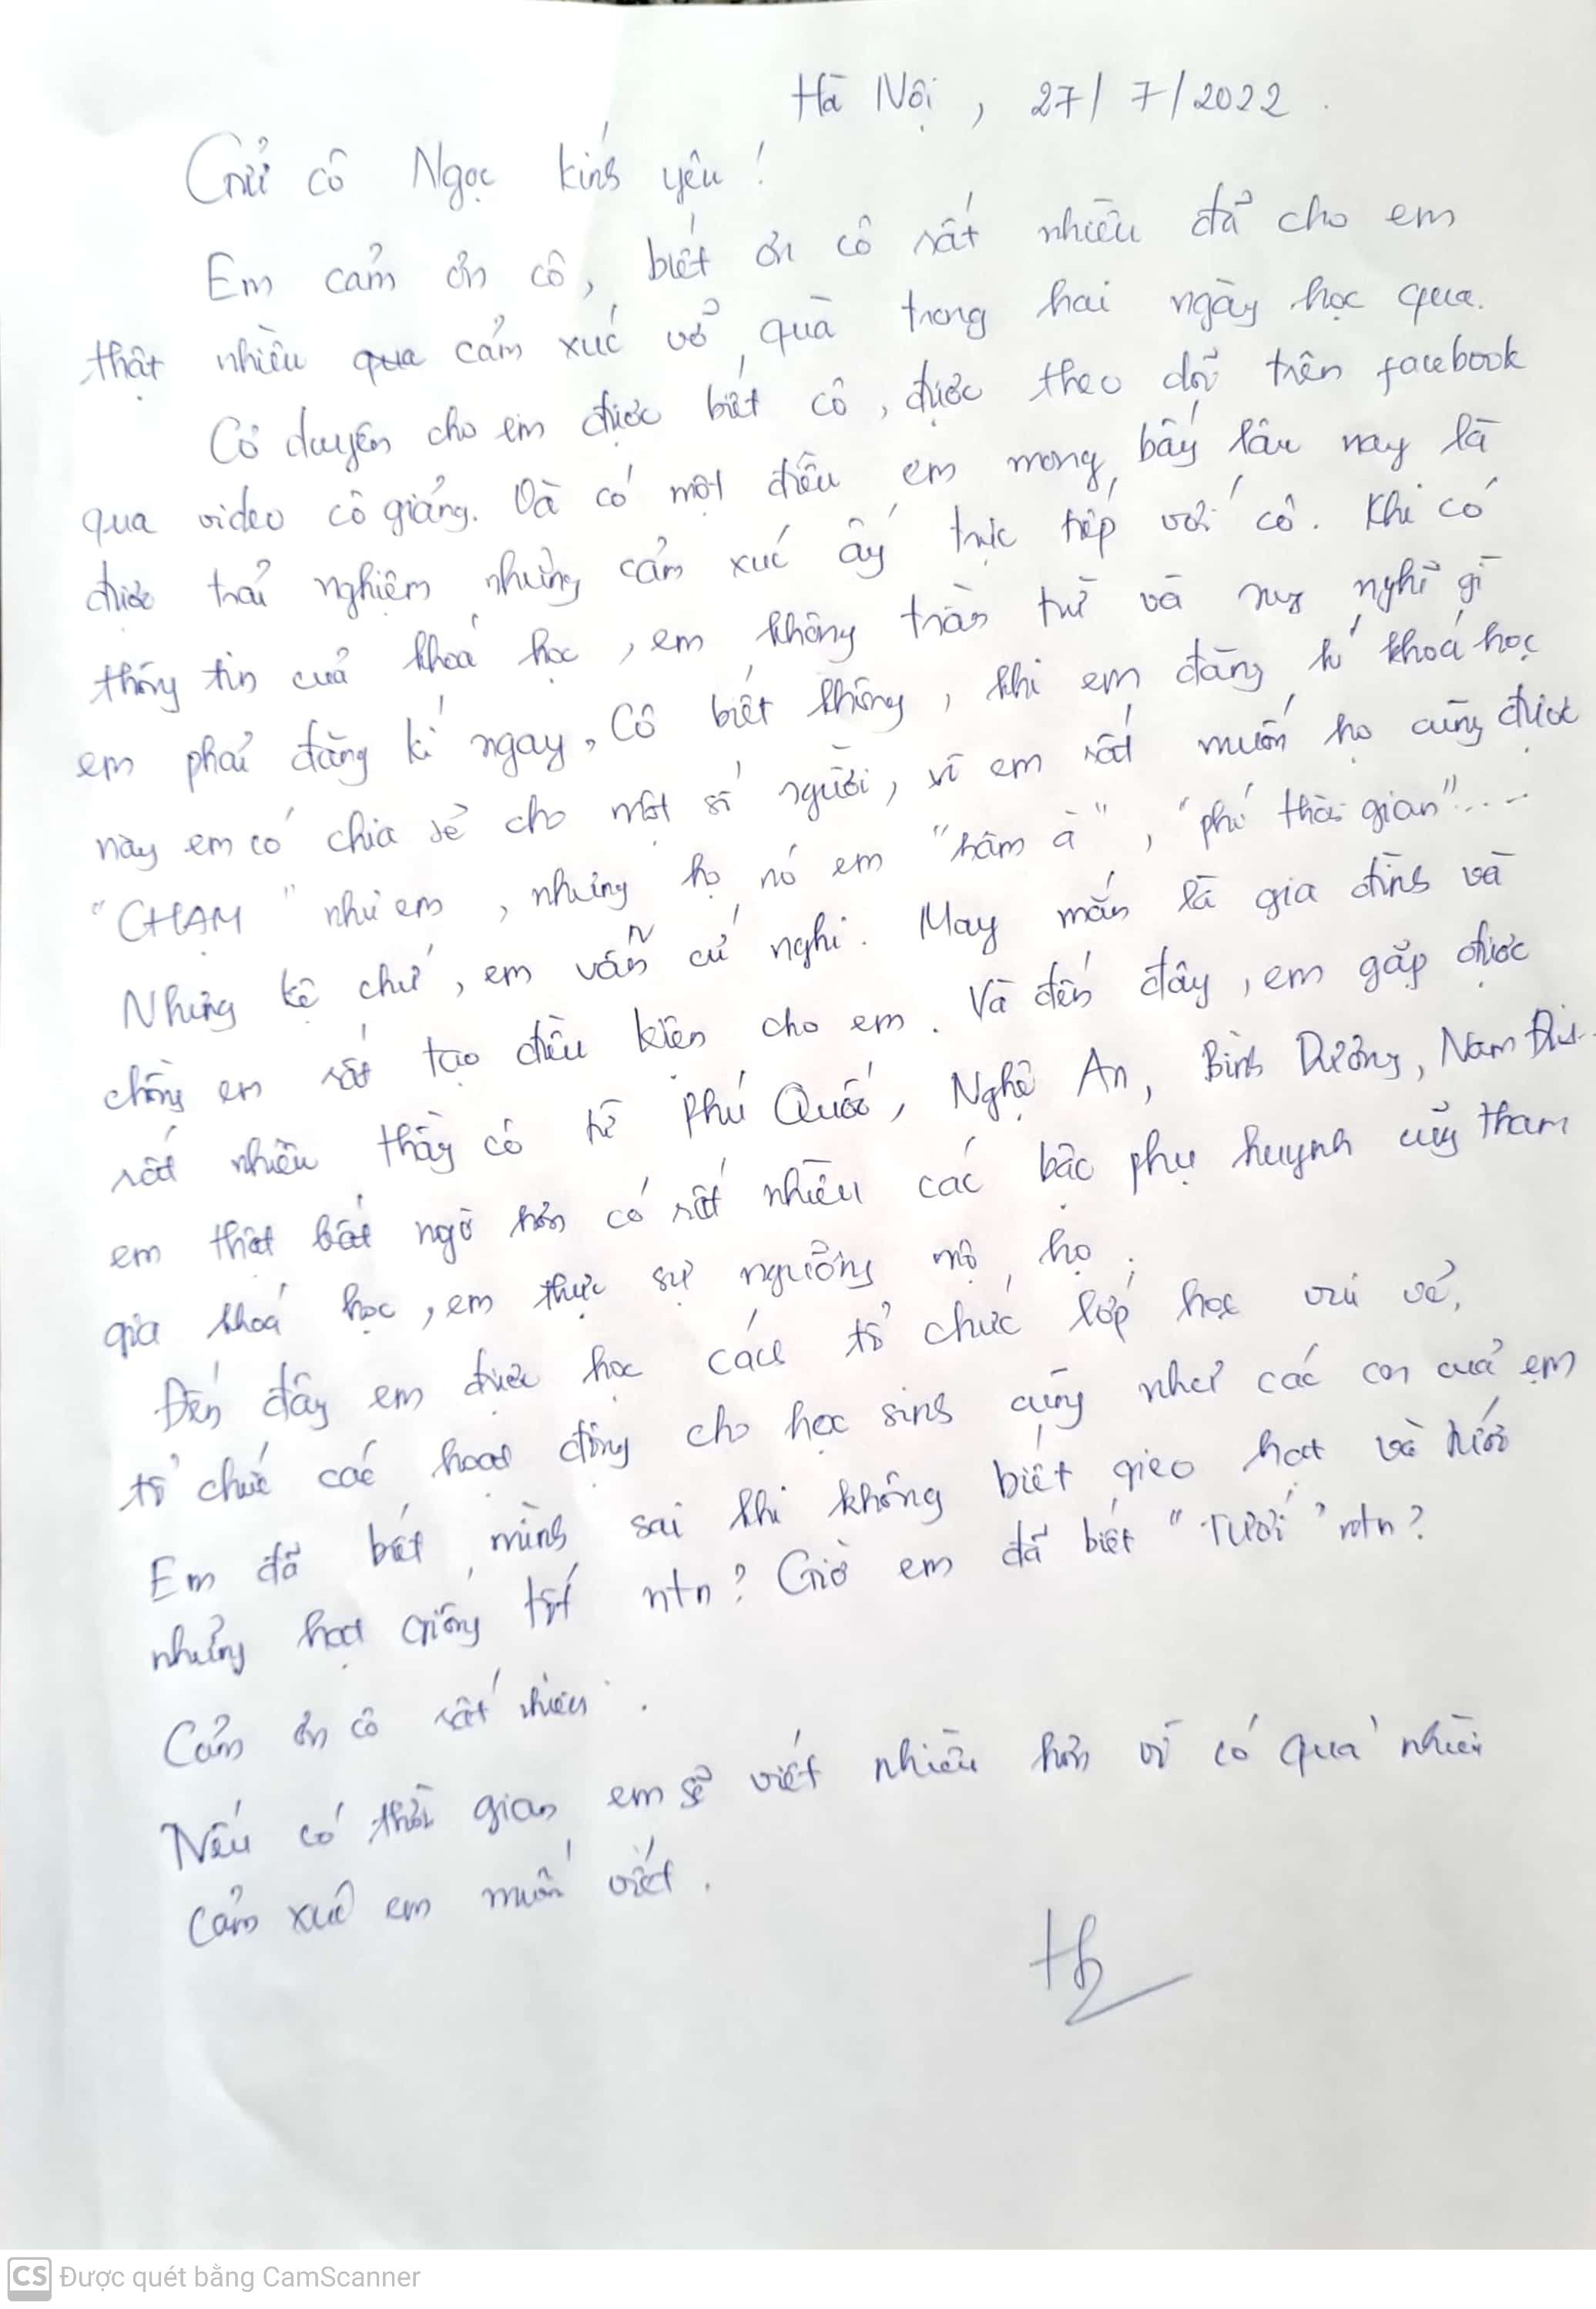 Hà Nội, 27/7/2022.
Gửi cô Ngọc kính yêu!
Em cảm ơn cô, biết ơn cô rất nhiều đã cho em
thật nhiều qua cảm xúc vỡ quà trong hai ngày học qua.
Có duyên cho em được biết cô, được theo dõi trên facebook
qua video cô giảng. Và có một điều em mong bấy lâu nay là
được trải nghiệm những cảm xúc ấy trực tiếp với cô. Khi có
thông tin của khoá học, em không trần trừ và suy nghĩ gì
em phải đăng kí ngay. Cô biết không, khi em đăng kí khoá học
này em có chia sẻ cho một số người, vì em rất muốn họ cũng được
"CHẠM" như em, nhưng họ nó em "hâm à", "phí thời gian"....
Nhưng kệ chứ, em vẫn cứ nghỉ. May mắn là gia đình và
chồng em rất tạo điều kiện cho em. Và đến đây, em gặp được
rất nhiều thầy cô từ Phú Quốc, Nghệ An, Bình Dương, Nam Định..
em thật bất ngờ hơn có rất nhiều các bậc phụ huynh cũng tham
gia khoá học, em thực sự ngưỡng mộ họ.
Đến đây em được học cách tổ chức lớp học vui vẻ,
tổ chức các hoạt động cho học sinh cũng như các con của em
Em đã biết mình sai khi không biết gieo hạt và tưới
những hạt giống tốt ntn? Giờ em đã biết "Tưới" ntn?
Cảm ơn cô rất nhiều.
Nếu có thời gian em sẽ viết nhiều hơn vì có quá nhiều
cảm xúc em muốn viết.
CS Được quét bằng CamScanner